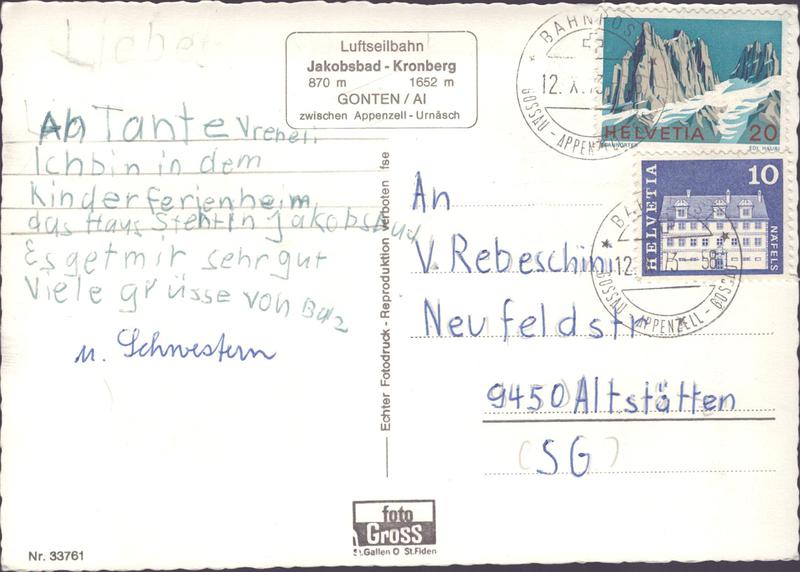 Lieber
Luftseilbahn
Jakobsbad - Kronberg
870 m 1652 m
GONTEN / AI
zwischen Appenzell - Urnäsch
An Tante Vreneli
Ich bin in dem
Kinderferienheim
das Haus Steht in Jakobsbad
Es get mir sehr gut
Viele grüsse von Balz
u. Schwestern
Echter Fotodruck - Reproduktion verboten fse
An
V. Rebeschini
Neufeldstr.
9450 Altstätten
(SG)
HELVETIA 20
10
HELVETIA
NÄFELS
12. X. 73
GOSSAU - APPENZELL
12 73 - 58
GOSSAU - APPENZELL - GOSSAU
foto
Gross
St.Gallen O St.Fiden
Nr. 33761